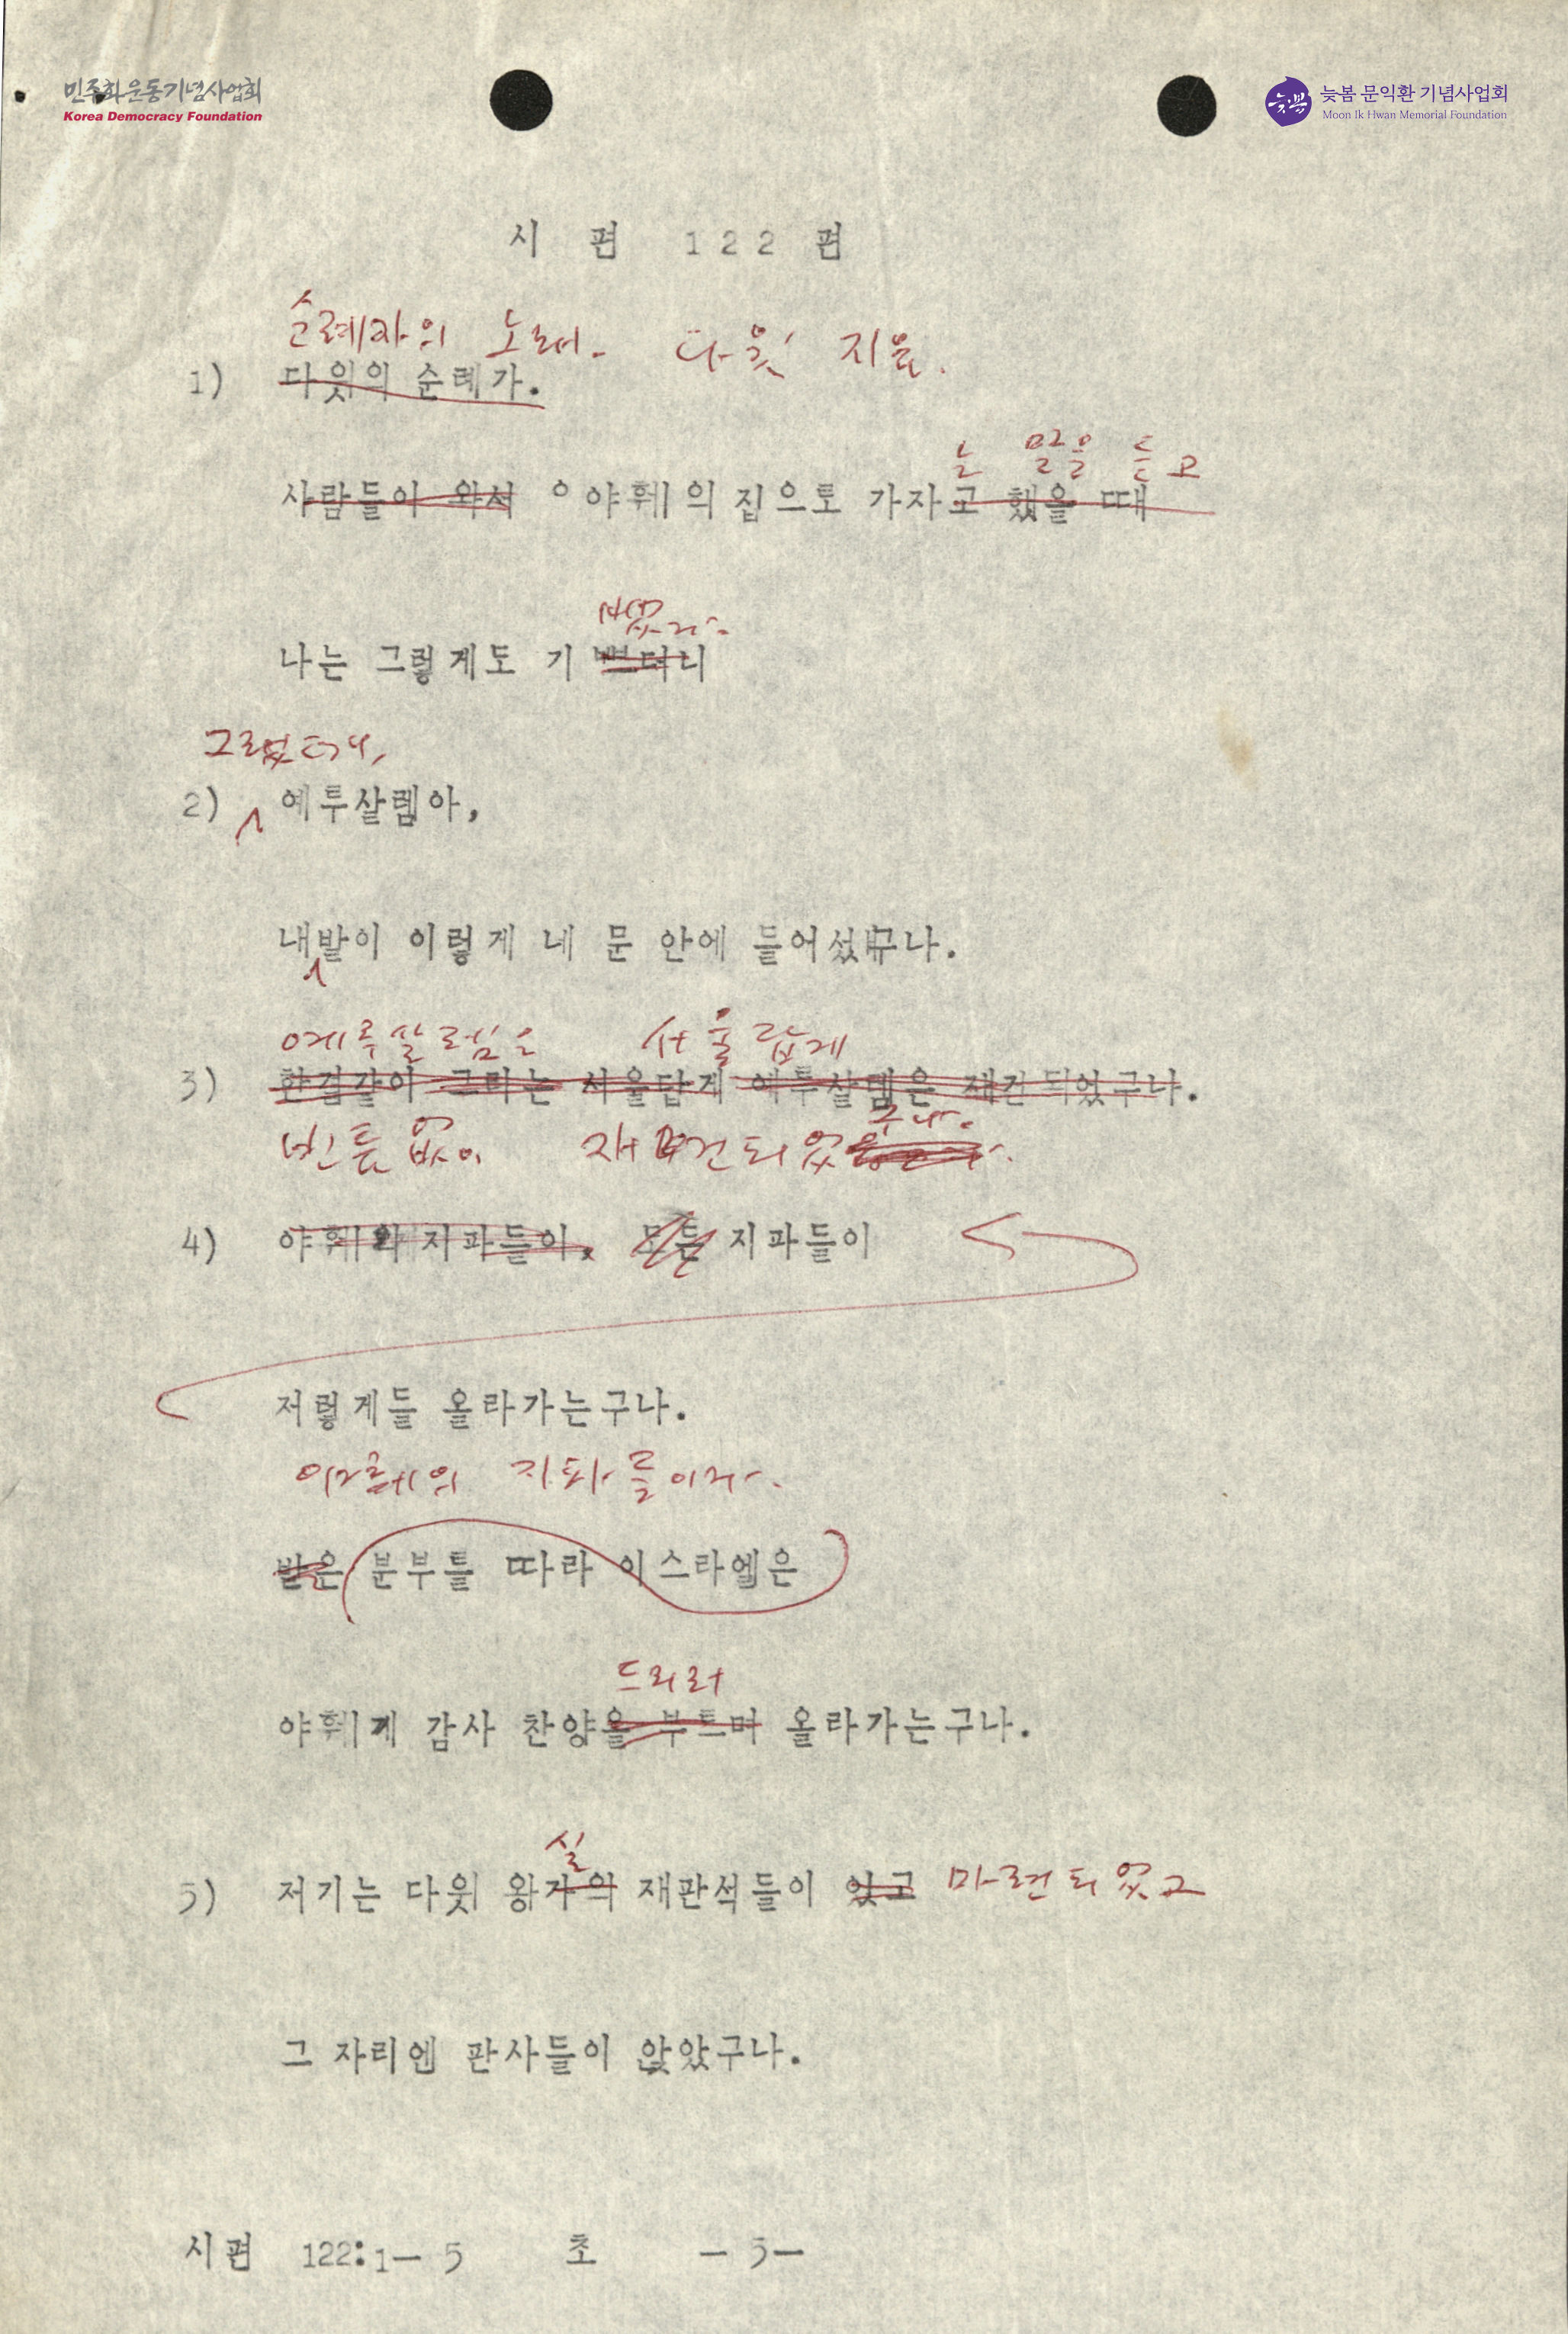 민주화운동기념사업회
Korea Democracy Foundation
늦봄
늦봄 문익환 기념사업회
Moon Ik Hwan Memorial Foundation
시 편 122 편
순례자의 노래. 다윗 지음.
1) 다윗의 순례가.
는 말을 듣고
사람들이 와서 야훼의 집으로 가자고 했을 때
뻤다.
나는 그렇게도 기쁘더니
그랬더니,
2) 예루살렘아,
내발이 이렇게 네 문 안에 들어섰구나.
예루살렘은 서울답게
3) 한결같이 그리는 서울답게 예루살렘은 재건되었구나.
구나.
빈틈없이 재건되었
4) 야훼와 지파들이, 모든 지파들이
저렇게들 올라가는구나.
야훼의 지파들이다.
받은 분부를 따라 이스라엘은
드리러
야훼게 감사 찬양을 부르며 올라가는구나.
실
5) 저기는 다윗 왕가의 재판석들이 있고 마련되었고
그 자리엔 판사들이 앉았구나.
시편 122:1— 5 초 — 5—